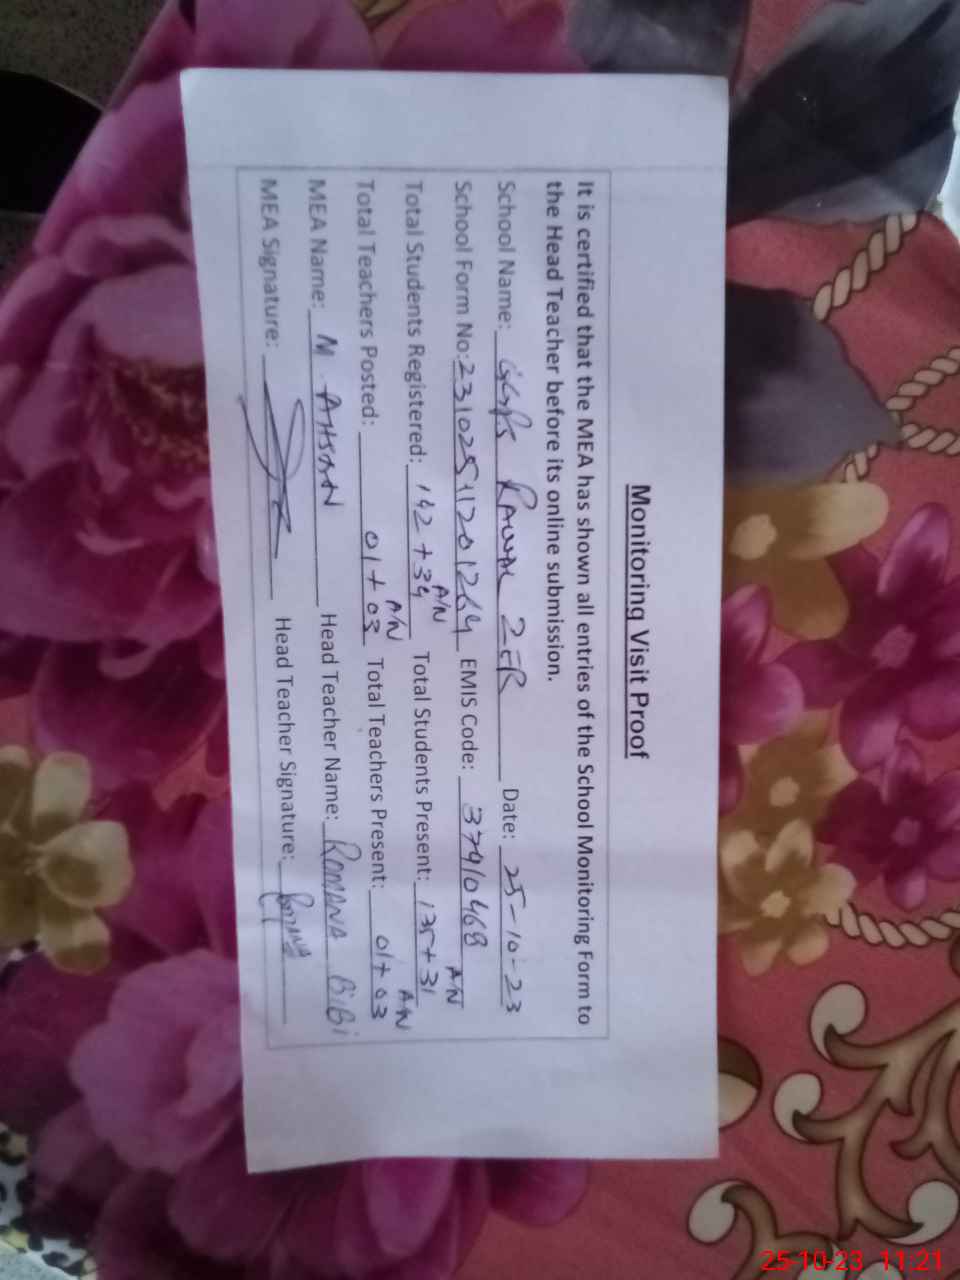 Monitoring Visit Proof
It is certified that the MEA has shown all entries of the School Monitoring Form to
the Head Teacher before its online submission.
School Name: Date: 25-10-23
School Form No: EMIS Code: 37910468
A/N A/N
Total Students Registered: 142+34 Total Students Present: 135+31
A/N A/N
Total Teachers Posted: 01+03 Total Teachers Present: 01+03
MEA Name: M. AHSAN Head Teacher Name: ROMANA BiBi
MEA Signature: Head Teacher Signature:
25-10-23 11:21